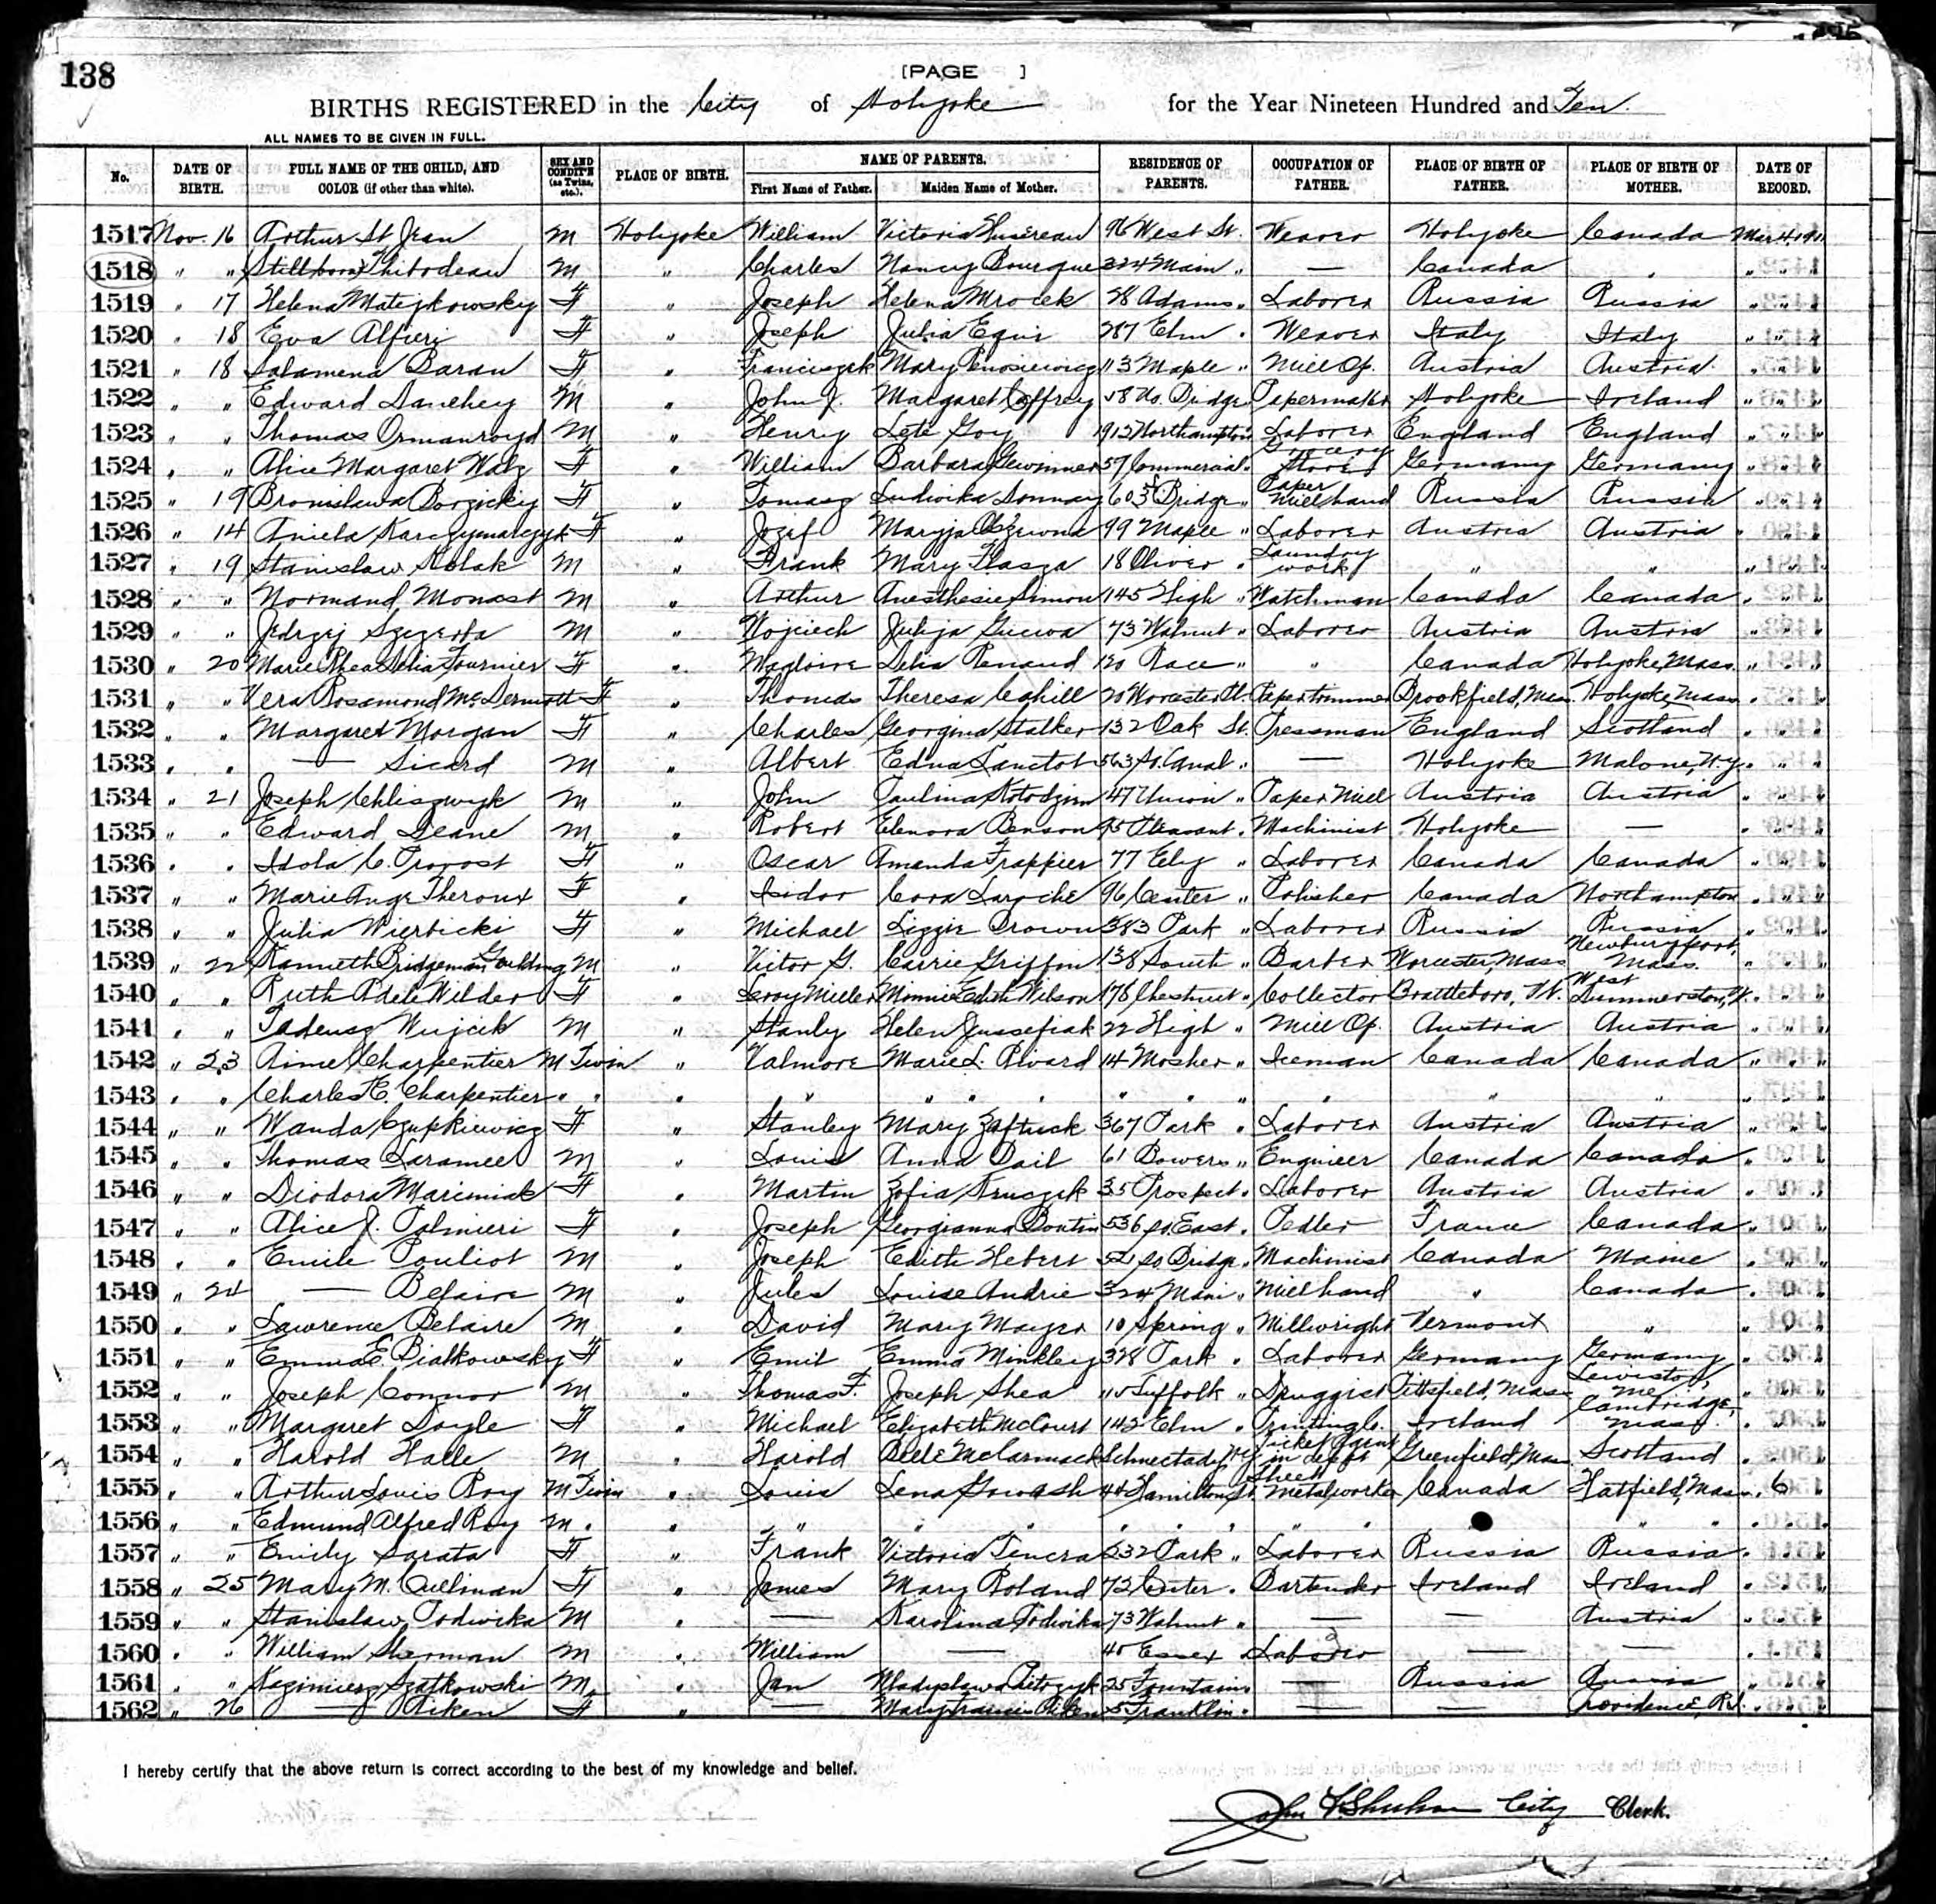 138
[PAGE ]
BIRTHS REGISTERED in the City of Holyoke for the Year Nineteen Hundred and Ten.
ALL NAMES TO BE GIVEN IN FULL.
No. DATE OF BIRTH. FULL NAME OF THE CHILD, AND COLOR (if other than white). SEX AND CONDIT'N (as Twins, etc.). PLACE OF BIRTH. NAME OF PARENTS. First Name of Father. Maiden Name of Mother. RESIDENCE OF PARENTS. OCCUPATION OF FATHER. PLACE OF BIRTH OF FATHER. PLACE OF BIRTH OF MOTHER. DATE OF RECORD.
1517 Nov. 16 Arthur St Jean M Holyoke William Victoria 96 West St. Weaver Holyoke Canada Mar 4 1911
1518 " " Stillborn Thibodeau M " Charles Nancy Bourque 324 Main " — Canada " " " "
1519 " 17 Helena Matejkowsky F " Joseph Helena Mrocek 28 Adams " Laborer Russia Russia " " "
1520 " 18 Eva Alfieri F " Joseph Julia Equi 287 Elm " Weaver Italy Italy " " "
1521 " 18 Salamena Baran F " Franciszek Mary 113 Maple " Mill Op. Austria Austria " " "
1522 " " Edward Danehey M " John J. Margaret Caffrey 58 No. Bridge " Papermaker Holyoke Ireland " " "
1523 " " Thomas Ormanroyd M " Henry Lete Goy 1913 Northampton " Laborer England England " " "
1524 " " Alice Margaret Watz F " William Barbara Gewinner 57 Commercial " Grocery Store Germany Germany " " "
1525 " 19 Bronislawa Borzicky F " Tomasz Ludwika 603 S. Bridge " Paper Millhand Russia Russia " " "
1526 " 14 Aniela Karczymarczyk F " Jozef Maryja 99 Maple " Laborer Austria Austria " " "
1527 " 19 Stanislaw Kolak M " Frank Mary Flasza 18 Oliver " Laundry work " " " " "
1528 " " Normand Monast M " Arthur Anesthesie Simon 145 High " Watchman Canada Canada " " "
1529 " " Jedrzej Szczerba M " Wojciech Julija Guewa 73 Walnut " Laborer Austria Austria " " "
1530 " 20 Marie Rhea Delia Fournier F " Magloire Delia Renaud 120 Race " " Canada Holyoke, Mass. " " "
1531 " " Vera Rosamond McDermott F " Thomas Theresa Cahill 20 Worcester Pl. Papertrimmer Brookfield, Mass. Holyoke, Mass. " " "
1532 " " Margaret Morgan F " Charles Georgina Stalker 132 Oak St. Pressman England Scotland " " "
1533 " " — Sicard M " Albert Edna Lanctot 563 So. Canal " — Holyoke Malone, N.Y. " " "
1534 " 21 Joseph Chliszwyk M " John Paulina Kotodzien 47 Union " Paper Mill Austria Austria " " "
1535 " " Edward Deane M " Robert Elenora Benson 95 Pleasant " Machinist Holyoke — " " "
1536 " " Idola C. Provost F " Oscar Amanda Frappier 77 Ely " Laborer Canada Canada " " "
1537 " " Marie Ange Theroux F " Isidor Cora Laroche 96 Center " Polisher Canada Northampton " " "
1538 " " Julia Wierbicki F " Michael Lizzie Brown 383 Park " Laborer Russia Russia " " "
1539 " 22 Kenneth Bridgeman Goulding M " Victor G. Carrie Griffin 138 South " Barber Worcester, Mass Newburyport, Mass. " " "
1540 " " Ruth Adele Wilder F " Leroy Miller Minnie Edith Wilson 178 Chestnut " Collector Brattleboro, Vt. West Dummerston, Vt. " " "
1541 " " Tadeusz Wujcik M " Stanly Helen Jussefiak 22 High " Mill Op. Austria Austria " " "
1542 " 23 Aime Charpentier M Twin " Valmore Marie L. Rivard 14 Mosher " Iceman Canada Canada " " "
1543 " " Charles E. Charpentier " " " " " " " " " " " " " " "
1544 " " Wanda Czupkiewicz F " Stanley Mary Zaftuck 367 Park " Laborer Austria Austria " " "
1545 " " Thomas Laramee M " Louis Anna Dail 61 Bowers " Engineer Canada Canada " " "
1546 " " Diodora Marciniak F " Martin Zofia Kruczek 35 Prospect " Laborer Austria Austria " " "
1547 " " Alice J. Palmieri F " Joseph Georgianna Boutin 536 So. East " Pedler France Canada " " "
1548 " " Emile Pouliot M " Joseph Edith Hebert 521 So Bridge " Machinist Canada Maine " " "
1549 " 24 — Belaire M " Jules Louise Andrie 324 Main " Millhand " Canada " " "
1550 " " Lawrence Belaire M " David Mary Mayer 10 Spring " Millwright Vermont " " " "
1551 " " Emma E. Bialkowsky F " Emil Emma Minkley 328 Park " Laborer Germany Germany " " "
1552 " " Joseph Connor M " Thomas F. Joseph Shea 115 Suffolk " Druggist Pittsfield, Mass Lewiston, Me. " " "
1553 " " Margaret Doyle F " Michael Elizabeth McCourt 142 Elm " Printing Co. Ireland Cambridge, Mass. " " "
1554 " " Harold Halle M " Harold Belle McCarmack Schnectady NY Ticket Agent in depot Greenfield, Mass Scotland " " "
1555 " " Arthur Louis Roy M Twin " Louis Lena Gowash 44 Hamilton St. Sheet Metalworker Canada Hatfield, Mass " 6 "
1556 " " Edmund Alfred Roy M " " " " " " " " " " " " " "
1557 " " Emily Sarata F " Frank Victoria Tencra 232 Park " Laborer Russia Russia " " "
1558 " 25 Mary M. Cullinan F " James Mary Boland 72 Center " Bartender Ireland Ireland " " "
1559 " " Stanislaw Podwika M " — Karolina Podwika 73 Walnut " — — Austria " " "
1560 " " William Sherman M " William — 45 Essex Laborer — — " " "
1561 " " Kazimierz Szatkowski M " Jan Wladyslawa 25 Fountain " — Russia Russia " " "
1562 " 26 — Aiken F " — Mary Francis Aiken 25 Franklin " — — Providence, R.I. " " "
I hereby certify that the above return is correct according to the best of my knowledge and belief.
John F. Sheehan City Clerk.